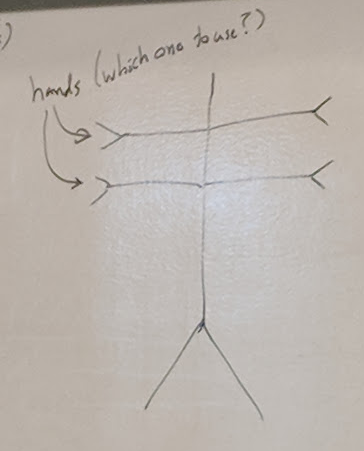 )
hands (which one to use?)